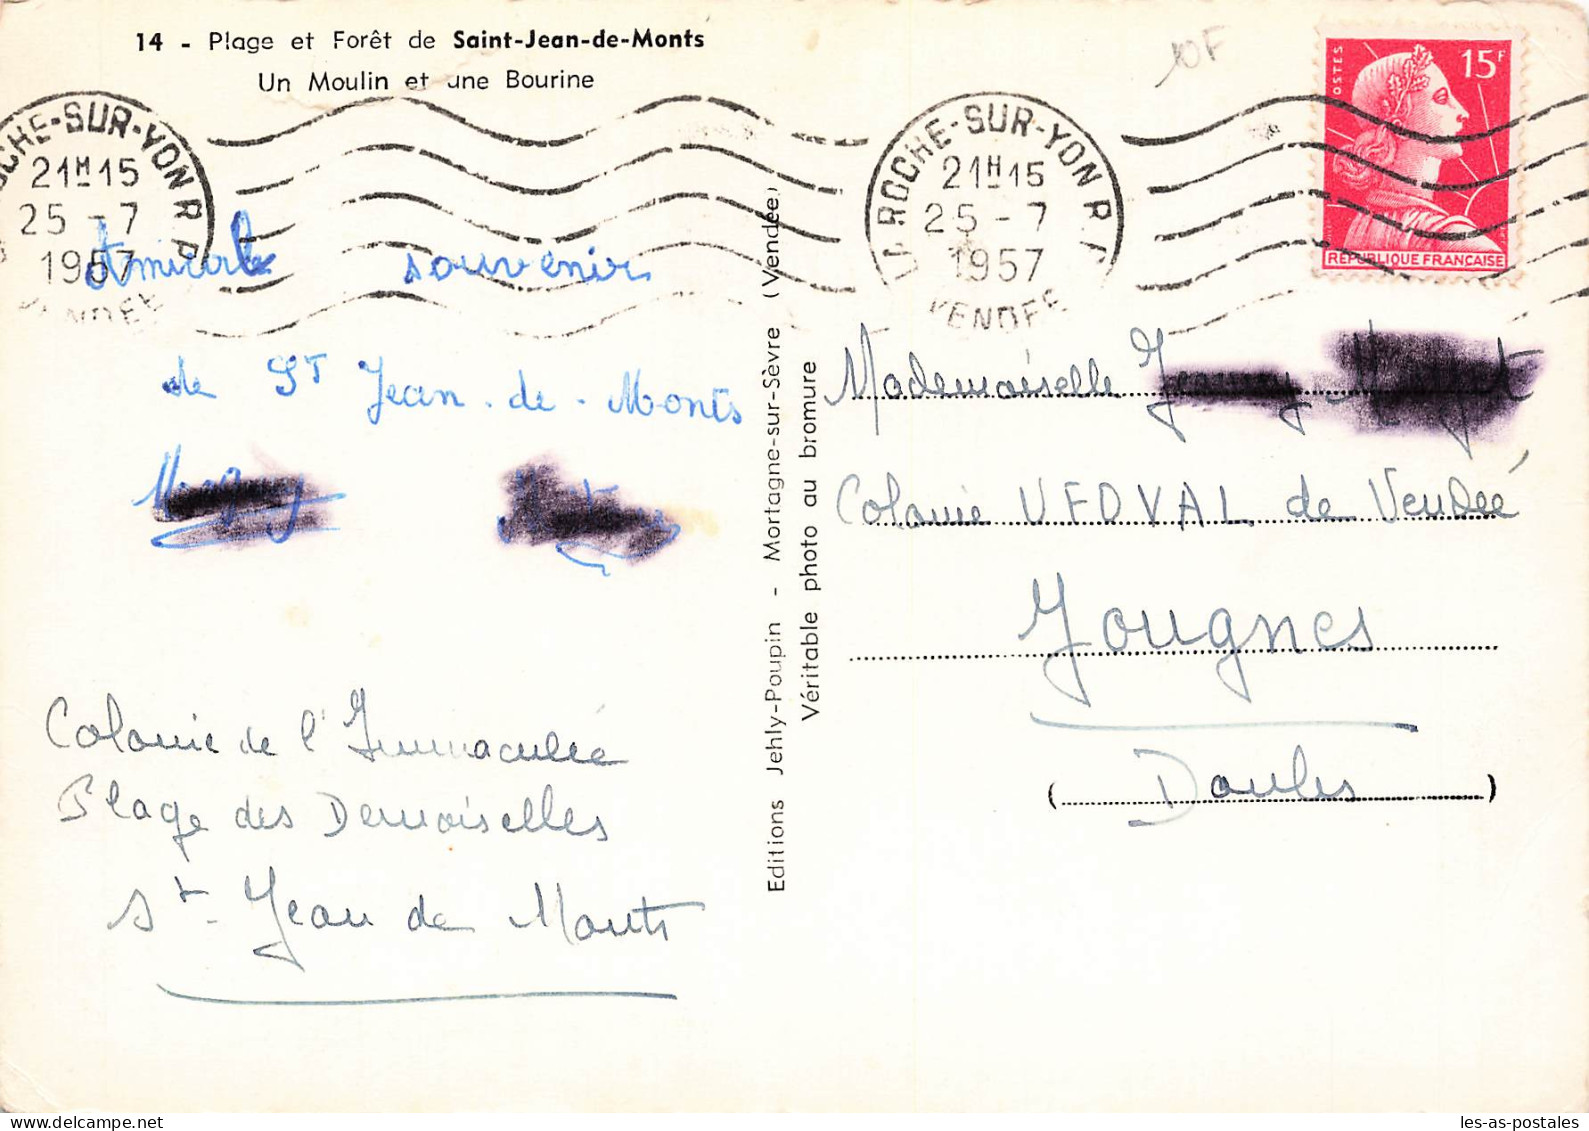 14 - Plage et Forêt de Saint-Jean-de-Monts
Un Moulin et une Bourine
10F
OSTES
15F
RÉPUBLIQUE FRANÇAISE
OCHE-SUR-YON R.P.
21H15
25 - 7
1957
VENDEE
LA ROCHE-SUR-YON R.P.
21H15
25 - 7
1957
VENDEE
Amicale souvenir
de ST Jean-de-Monts
Colonie de l'Immaculée
Plage des Demoiselles
St-Jean de Monts
Editions Jehly-Poupin - Mortagne-sur-Sèvre (Vendée)
Véritable photo au bromure
Mademoiselle
Colonie UFOVAL de Vendée
Jougnes
(Doubs)
les-as-postales